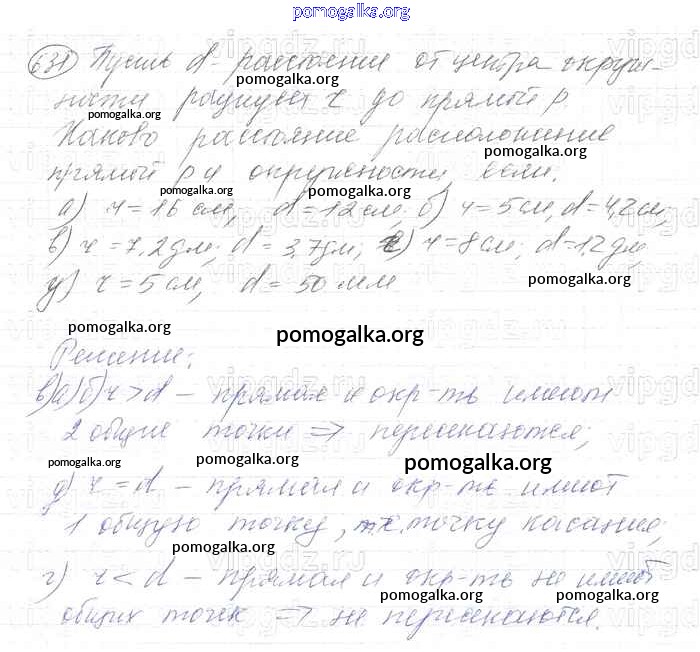 pomogalka.org
631) Пусть d - расстояние от центра окруж-
pomogalka.org
ности радиуса r до прямой p.
pomogalka.org
Каково расстояние расположение
pomogalka.org
прямой p и окружности если:
pomogalka.org pomogalka.org
а) r = 16 см, d = 12 см. б) r = 5 см, d = 4,2 см;
в) r = 7,2 дм; d = 3,7 дм; г) r = 8 см; d = 1,2 дм;
pomogalka.org
д) r = 5 см, d = 50 мм
pomogalka.org pomogalka.org
Решение:
в)а)б) r > d - прямая и окр-ть имеют
2 общие точки => пересекаются;
pomogalka.org pomogalka.org pomogalka.org
д) r = d - прямая и окр-ть имеют
1 общую точку, т.е. точку касания;
pomogalka.org
г) r < d - прямая и окр-ть не имеют
pomogalka.org pomogalka.org
общих точек => не пересекаются.